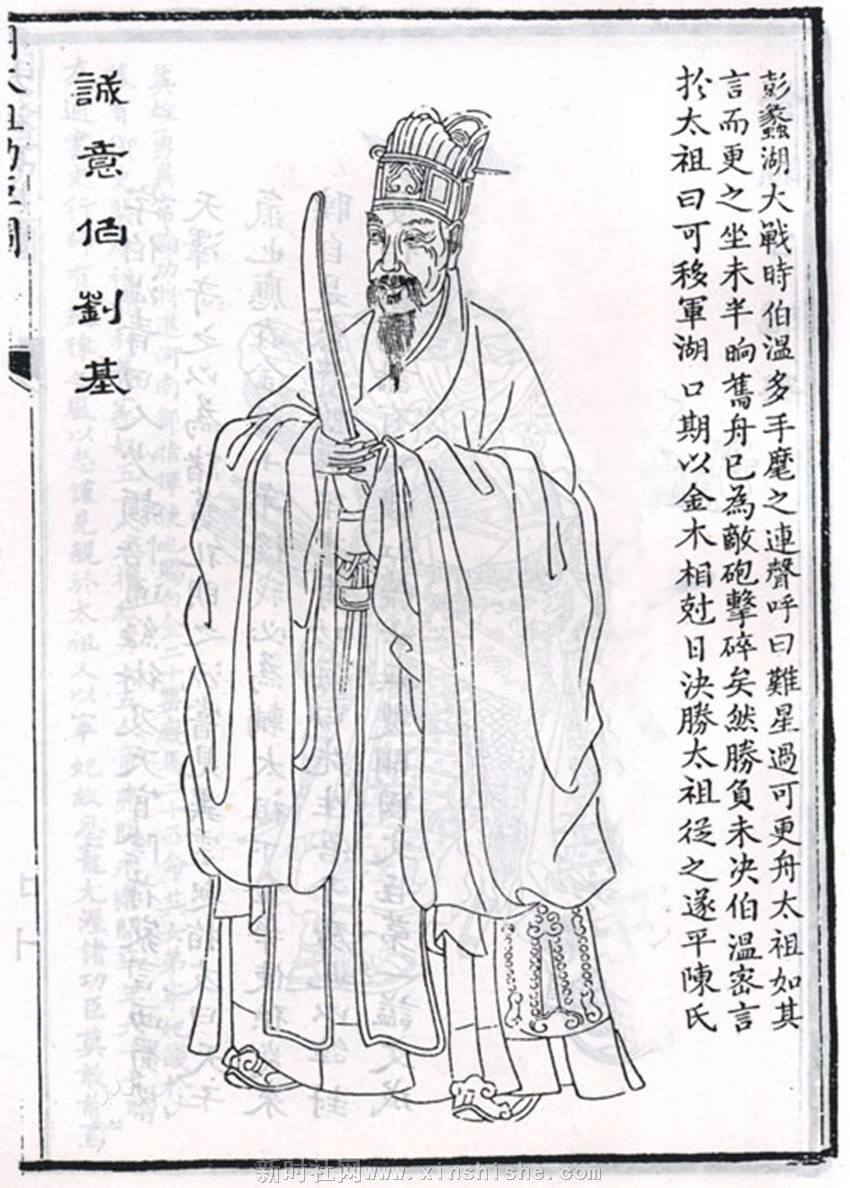 彭蠡湖大戰時伯溫多手麾之連聲呼曰難星過可更舟太祖如其
言而更之坐未半晌舊舟已為敵砲擊碎矣然勝負未決伯溫密言
於太祖曰可移軍湖口期以金木相尅日決勝太祖從之遂平陳氏
誠意伯劉基
新时社网www.xinshishe.com